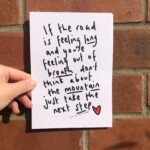 If the road
is feeling long
and you're
feeling out of
breath don't
think about
the mountain
just take the
next step